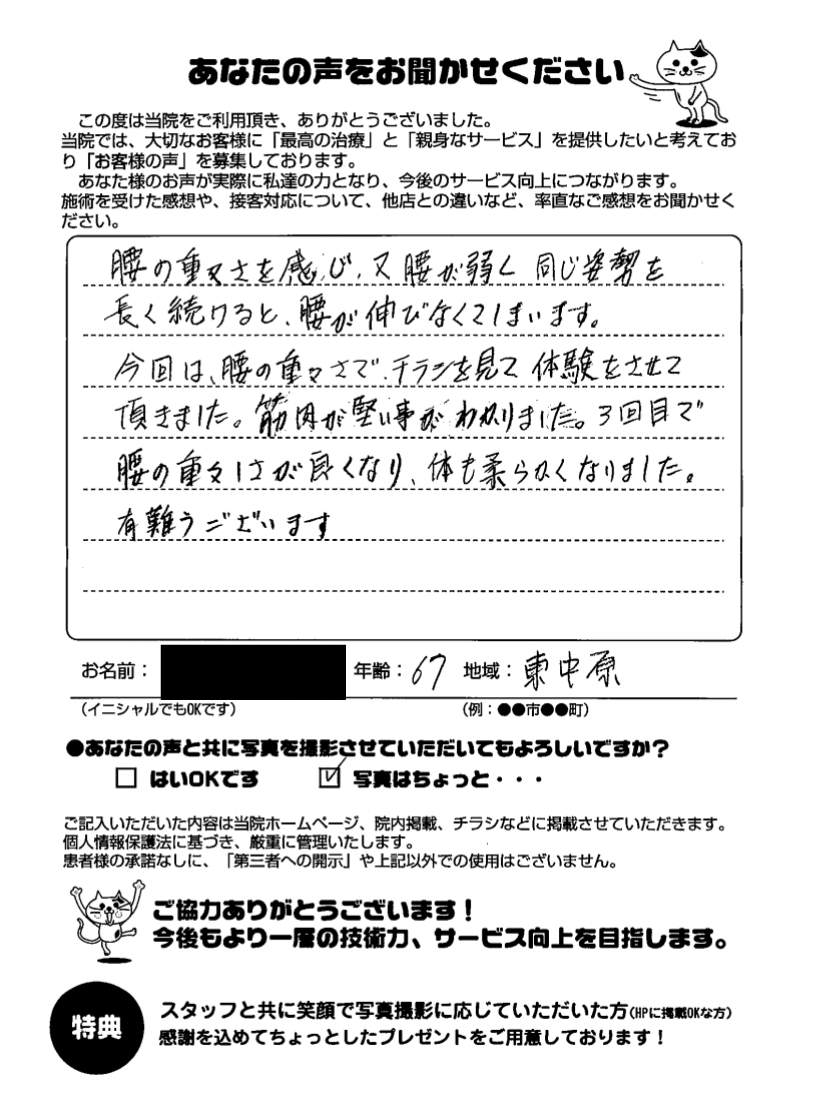 あなたの声をお聞かせください
この度は当院をご利用頂き、ありがとうございました。
当院では、大切なお客様に「最高の治療」と「親身なサービス」を提供したいと考えてお
り「お客様の声」を募集しております。
あなた様のお声が実際に私達の力となり、今後のサービス向上につながります。
施術を受けた感想や、接客対応について、他店との違いなど、率直なご感想をお聞かせく
ださい。
腰の重々さを感じ、又腰が弱く 同じ姿勢を
長く続けると、腰が伸びなくてしまいます。
今回は、腰の重々さで、チラシを見て 体験をさせて
頂きました。筋肉が堅い事がわかりました。3回目で
腰の重々しさが良くなり、体も柔らかくなりました。
有難うございます
お名前: 年齢:67 地域:東中原
(イニシャルでもOKです) (例:●●市●●町)
●あなたの声と共に写真を撮影させていただいてもよろしいですか?
□ はいOKです ☑ 写真はちょっと・・・
ご記入いただいた内容は当院ホームページ、院内掲載、チラシなどに掲載させていただきます。
個人情報保護法に基づき、厳重に管理いたします。
患者様の承諾なしに、「第三者への開示」や上記以外での使用はございません。
ご協力ありがとうございます!
今後もより一層の技術力、サービス向上を目指します。
特典
スタッフと共に笑顔で写真撮影に応じていただいた方(HPに掲載OKな方)
感謝を込めてちょっとしたプレゼントをご用意しております!